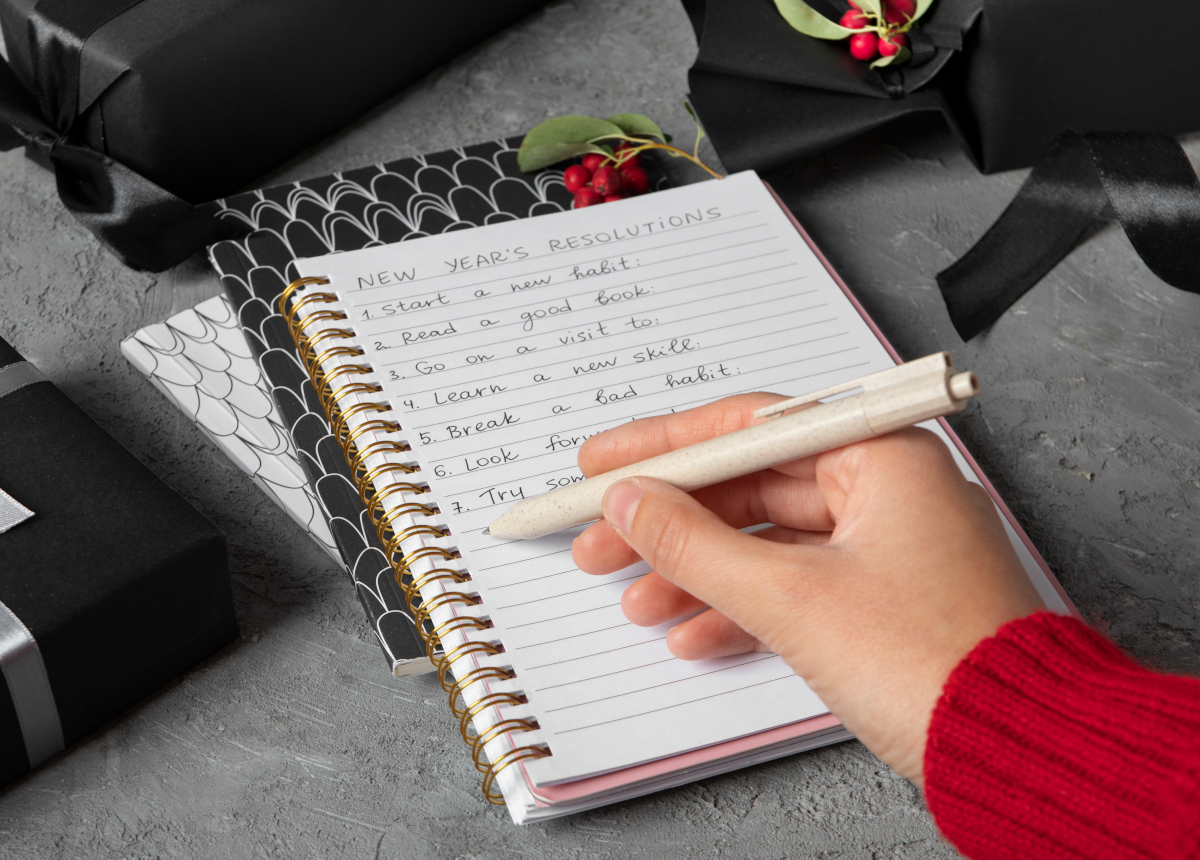 NEW YEAR'S RESOLUTIONS
1. Start a new habit:
2. Read a good book:
3. Go on a visit to:
4. Learn a new skill:
5. Break a bad habit:
6. Look
7. Try